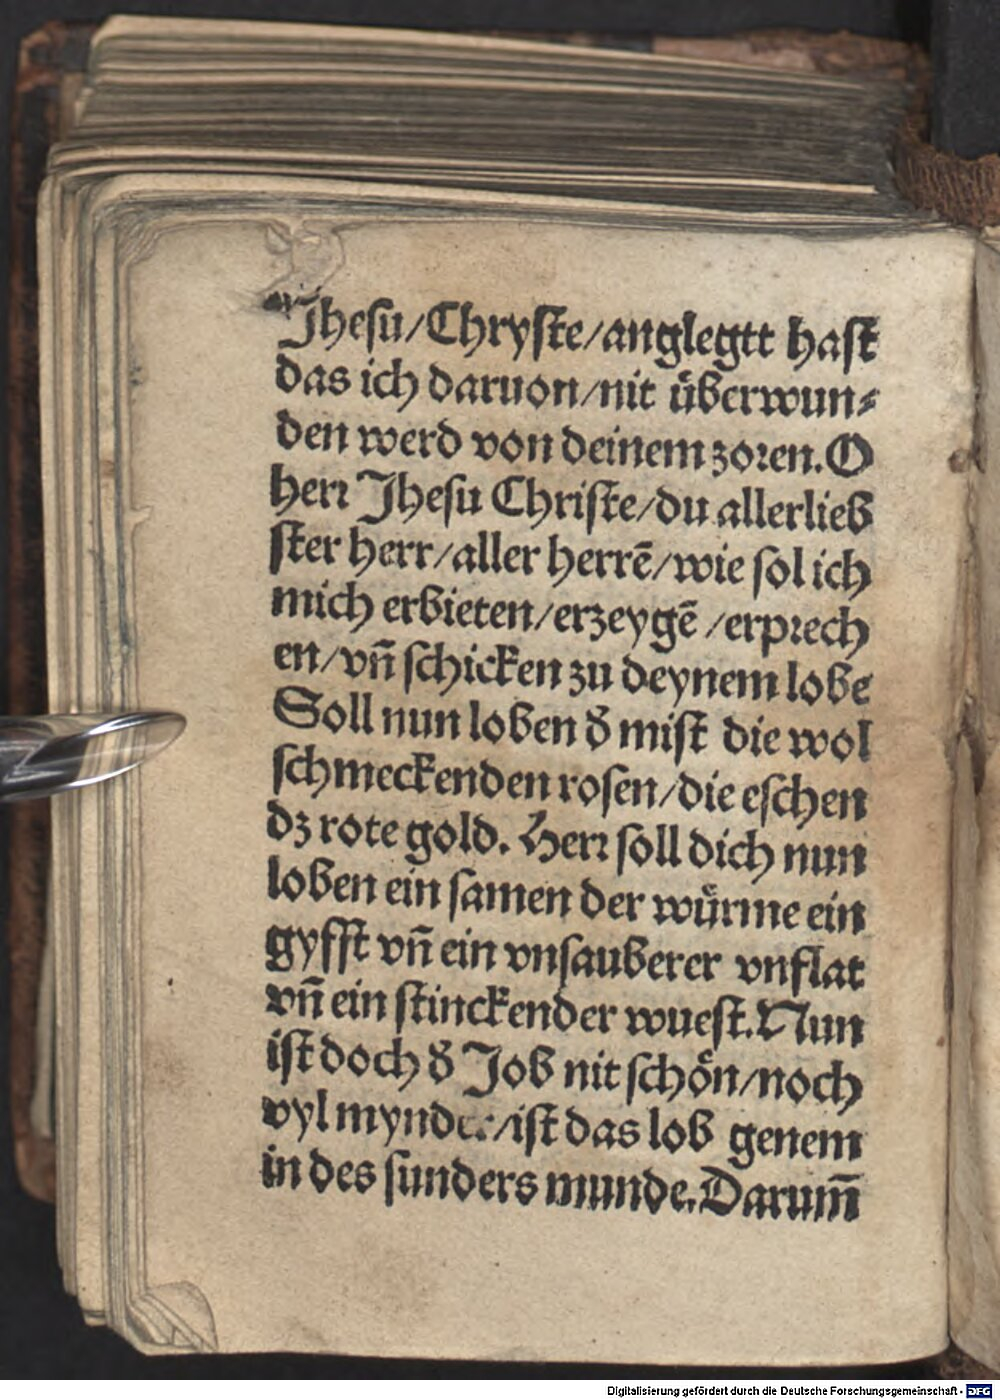 Jhesu/Chryste/anglegtt hast
das ich daruon/nit überwun⸗
den werd von deinem zoren. O
herr Jhesu Christe/du allerlieb
ster herr/aller herrē/wie sol ich
mich erbieten/erzeygē/erprech
en/vn̄ schicken zu deynem lobe
Soll nun loben d̕ mist die wol
schmeckenden rosen/die eschen
dz rote gold. Herr soll dich nun
loben ein samen der würme ein
gyfft vn̄ ein vnsauberer vnflat
vn̄ ein stinckender wuest. Nun
ist doch d̕ Job nit schön/noch
vyl mynder/ist das lob genem
in des sunders munde. Darum̄
Digitalisierung gefördert durch die Deutsche Forschungsgemeinschaft - DFG